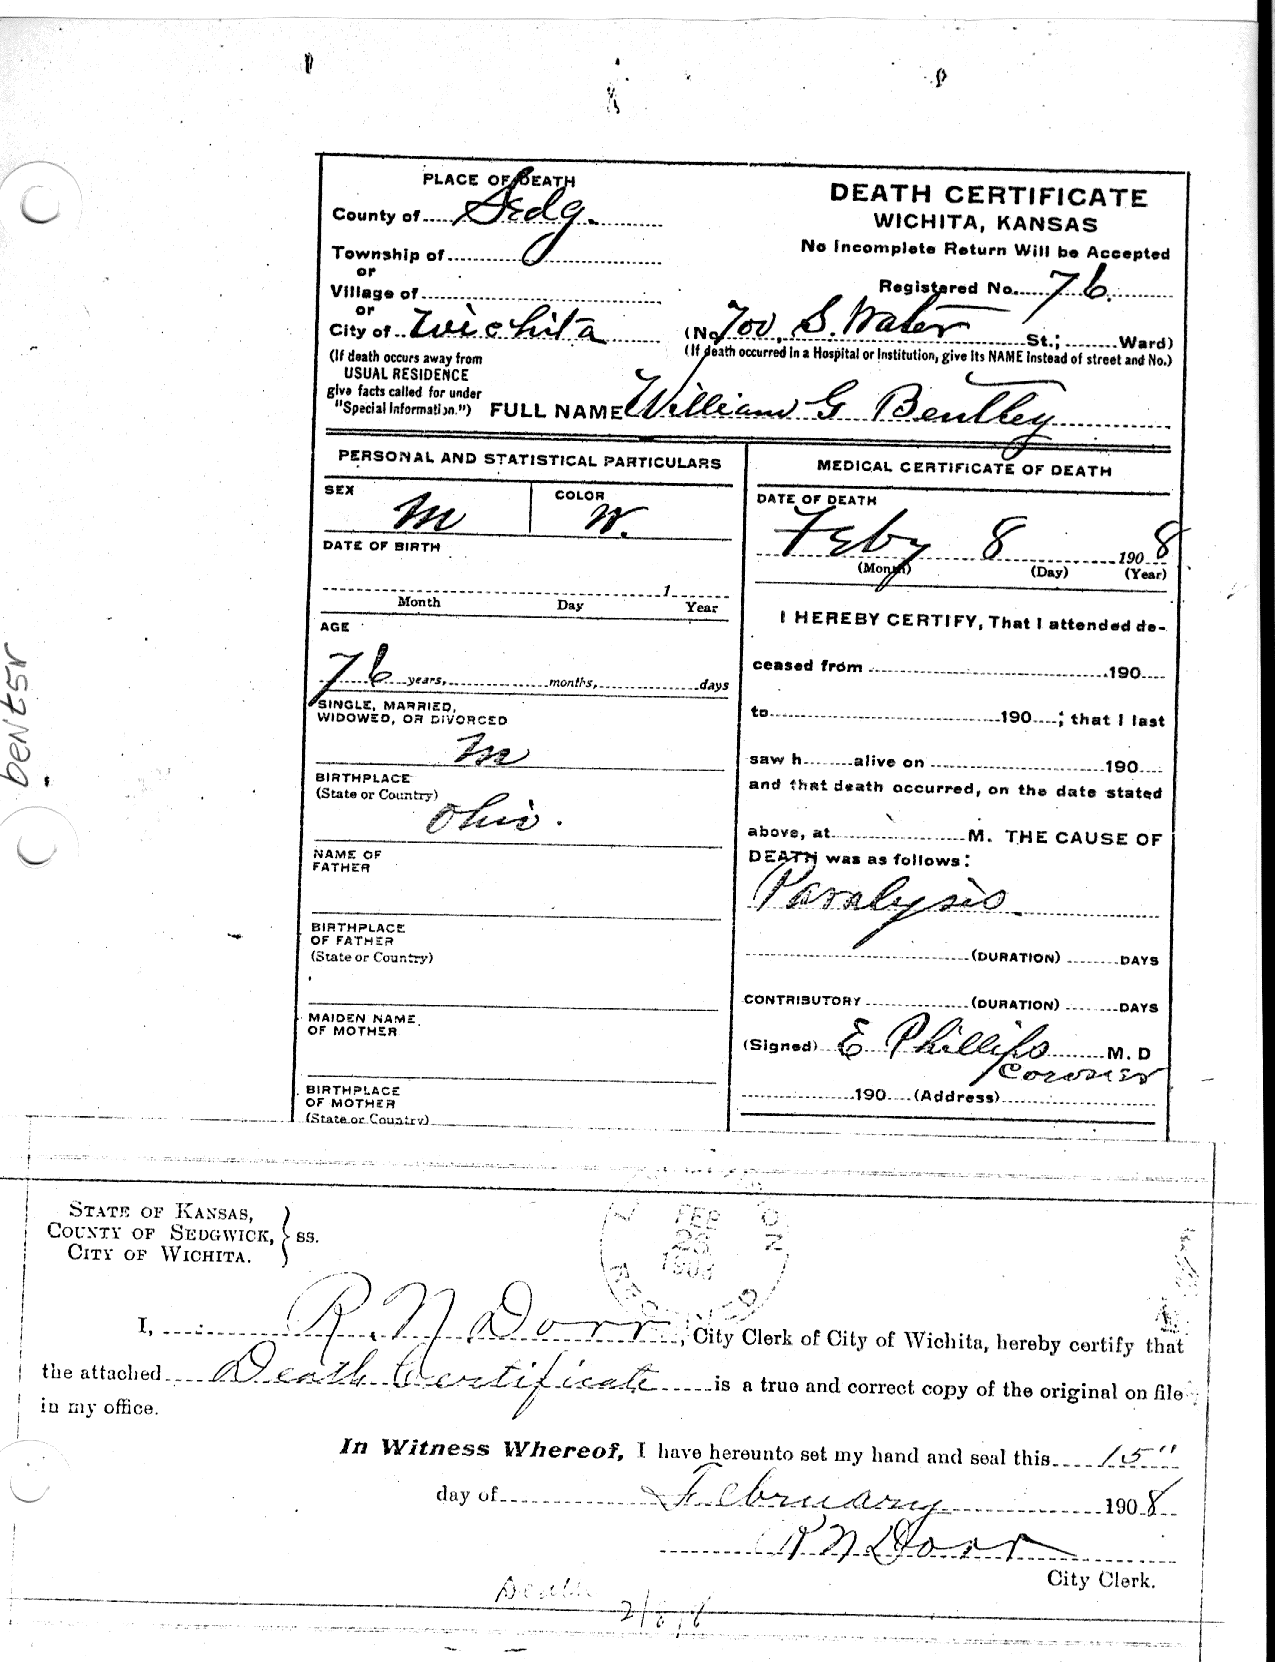 PLACE OF DEATH
County of Sedg.
Township of
or
Village of
or
City of Wichita
(If death occurs away from
USUAL RESIDENCE
give facts called for under
"Special Information.")
DEATH CERTIFICATE
WICHITA, KANSAS
No Incomplete Return Will be Accepted
Registered No. 76.
(No 700, S. Water St.; Ward)
(If death occurred in a Hospital or Institution, give its NAME instead of street and No.)
FULL NAME William G Bentley
PERSONAL AND STATISTICAL PARTICULARS
SEX
M
COLOR
W.
DATE OF BIRTH
1
Month Day Year
AGE
76 years, months, days
SINGLE, MARRIED,
WIDOWED, OR DIVORCED
M
BIRTHPLACE
(State or Country)
Ohio.
NAME OF
FATHER
BIRTHPLACE
OF FATHER
(State or Country)
MAIDEN NAME
OF MOTHER
BIRTHPLACE
OF MOTHER
(State or Country)
MEDICAL CERTIFICATE OF DEATH
DATE OF DEATH
Feby 8 1908
(Month) (Day) (Year)
I HEREBY CERTIFY, That I attended de-
ceased from 190
to 190 ; that I last
saw h alive on 190
and that death occurred, on the date stated
above, at M. THE CAUSE OF
DEATH was as follows:
Paralysis
(DURATION) DAYS
CONTRIBUTORY (DURATION) DAYS
(Signed) E Phillips M. D
Coroner
190 (Address)
STATE OF KANSAS,
COUNTY OF SEDGWICK, } ss.
CITY OF WICHITA.
FEB
1908
RECEIVED
I, R. N Dorr, City Clerk of City of Wichita, hereby certify that
the attached Death Certificate is a true and correct copy of the original on file
in my office.
In Witness Whereof, I have hereunto set my hand and seal this 15"
day of February 1908
R N Dorr
City Clerk.
Death
2/8/8